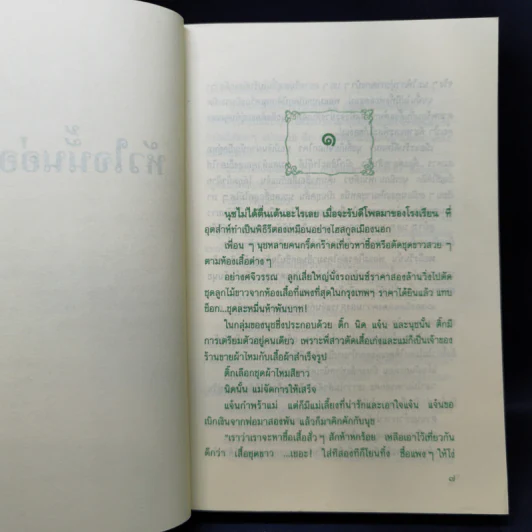 ๑
นุชไม่ได้ตื่นเต้นอะไรเลย เมื่อจะรับดีโพลมาของโรงเรียน ที่
อุตส่าห์ทำเป็นพิธีรีตองเหมือนอย่างไฮสกูลเมืองนอก
เพื่อน ๆ นุชหลายคนกรี๊ดกร๊าดเที่ยวหาซื้อหรือตัดชุดขาวสวย ๆ
ตามห้องเสื้อต่าง ๆ
อย่างศจีวรรณ ลูกเสี่ยใหญ่นั่งรถเบนซ์ราคาสองล้านวิ่งไปตัด
ชุดลูกไม้ขาวจากห้องเสื้อที่แพงที่สุดในกรุงเทพฯ ราคาได้ยินแล้ว แทบ
ช็อก...ชุดละหมื่นห้าพันบาท!
ในกลุ่มของนุชซึ่งประกอบด้วย ติ๊ก นิด แจ๋น และนุชนั้น ติ๊กมี
การเตรียมตัวอยู่คนเดียว เพราะพี่สาวตัดเสื้อเก่งและแม่ก็เป็นเจ้าของ
ร้านขายผ้าไหมกับเสื้อผ้าสำเร็จรูป
ติ๊กเลือกชุดผ้าไหมสีขาว
นิดนั้น แม่จัดการให้เสร็จ
แจ๋นกำพร้าแม่ แต่ก็มีแม่เลี้ยงที่น่ารักและเอาใจแจ๋น แจ๋นขอ
เบิกเงินจากพ่อมาสองพัน แล้วก็มาคิกคักกับนุช
"เราว่าเราจะหาซื้อเสื้อสั่ว ๆ สักห้าหกร้อย เหลือเอาไว้เที่ยวกัน
ดีกว่า เสื้อชุดขาว ...เชอะ! ใส่ทีสองทีก็โยนทิ้ง ซื้อแพง ๆ ให้โง่
๗